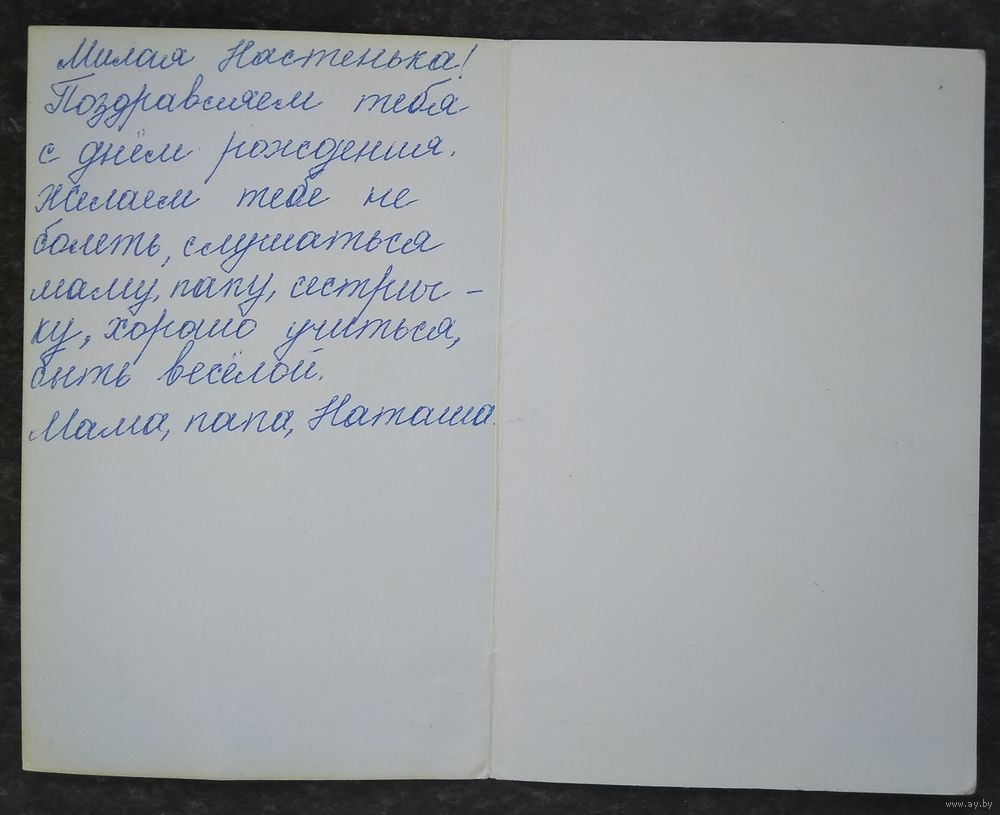 Милая Настенька!
Поздравляем тебя
с днём рождения.
Желаем тебе не
болеть, слушаться
маму, папу, сестрич-
ку, хорошо учиться,
быть весёлой.
Мама, папа, Наташа.
www.ay.by